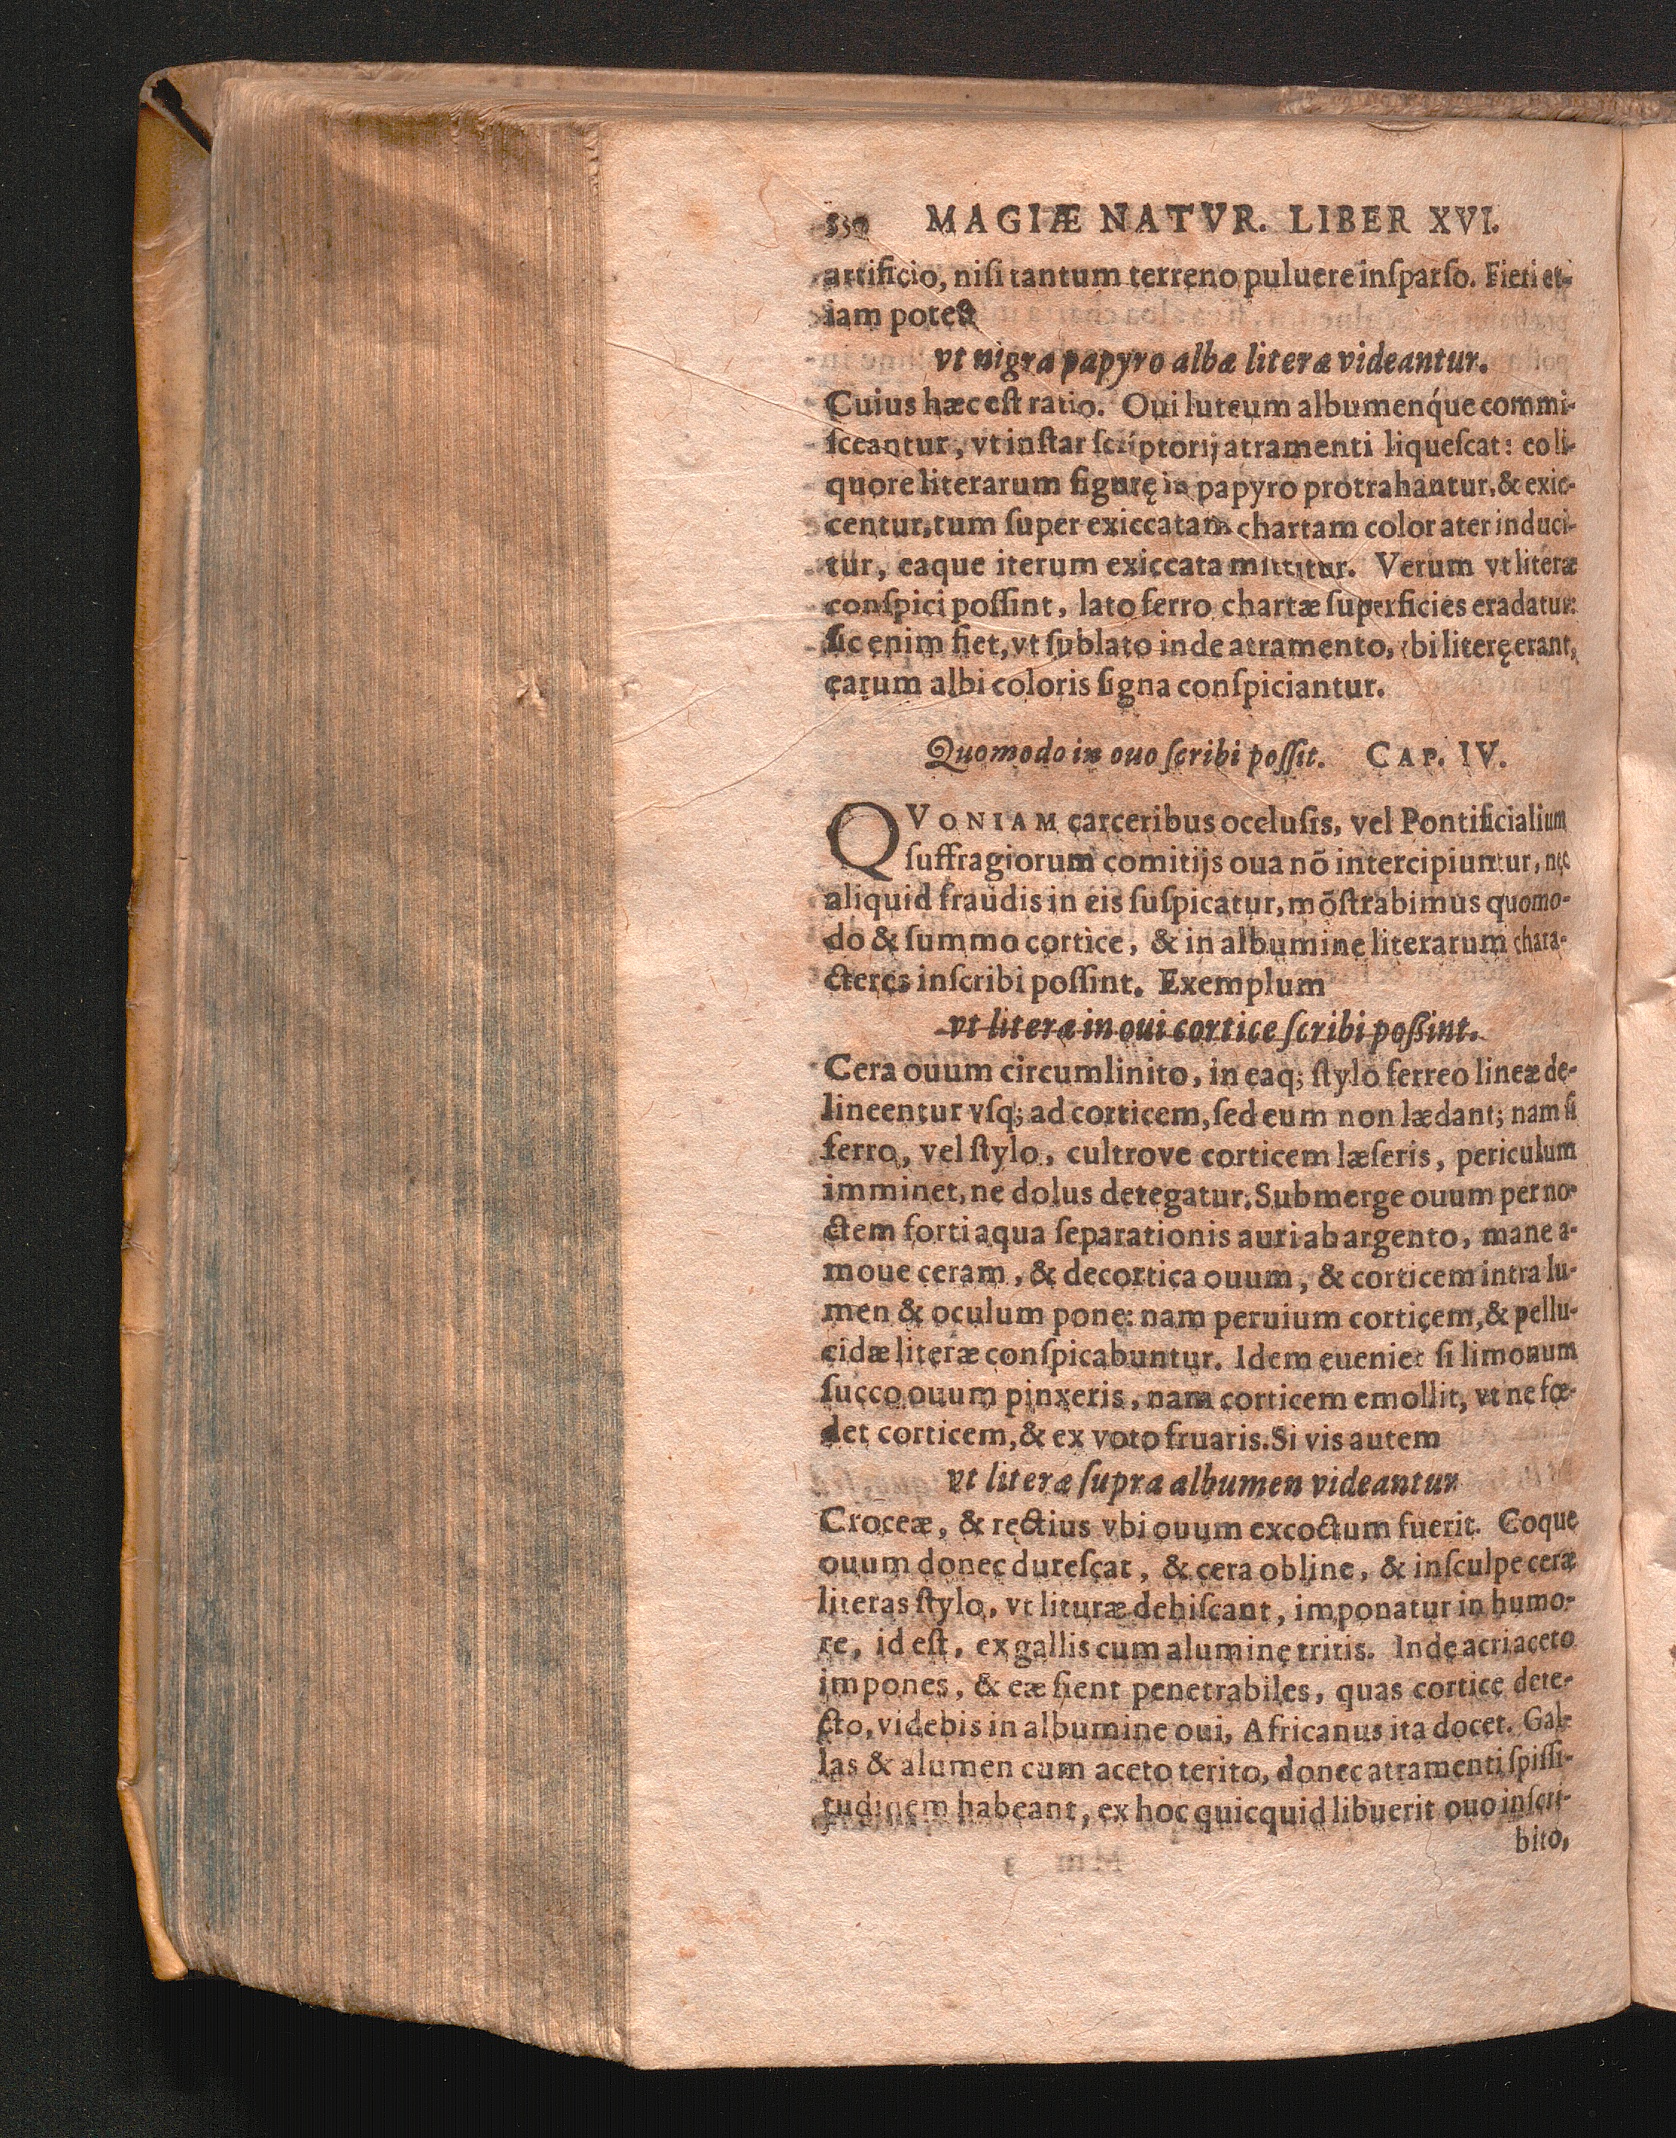 550 MAGIÆ NATVR. LIBER XVI.
artificio, niſi tantum terreno puluere inſparſo. Fieri et-
iam poteſt
vt nigra papyro albæ literæ videantur.
Cuius hæc eſt ratio. Oui luteum albumenq́ue commi-
ſceantur, vt inſtar ſcriptorij atramenti liqueſcat: eo li-
quore literarum figurę in papyro protrahantur, & exic-
centur, tum ſuper exiccatam chartam color ater induci-
tur, eaque iterum exiccata mittitur. Verum vt literæ
conſpici poſſint, lato ferro chartæ ſuperficies eradatur:
ſic enim fiet, vt ſublato inde atramento, vbi literę erant,
earum albi coloris ſigna conſpiciantur.
Quomodo in ouo ſcribi poſſit. CAP. IV.
QVONIAM carceribus occluſis, vel Pontificialium
ſuffragiorum comitijs oua nõ intercipiuntur, nec
aliquid fraudis in eis ſuſpicatur, mõſtrabimus quomo-
do & ſummo cortice, & in albumine literarum chara-
cteres inſcribi poſſint. Exemplum
vt literæ in oui cortice ſcribi poßint.
Cera ouum circumlinito, in eaq; ſtylo ferreo lineæ de-
lineentur vſq; ad corticem, ſed eum non lædant; nam ſi
ferro, vel ſtylo, cultrove corticem læſeris, periculum
imminet, ne dolus detegatur. Submerge ouum per no-
ctem forti aqua ſeparationis auri ab argento, mane a-
moue ceram, & decortica ouum, & corticem intra lu-
men & oculum pone: nam peruium corticem, & pellu-
cidæ literæ conſpicabuntur. Idem eueniet ſi limonum
ſucco ouum pinxeris, nam corticem emollit, vt ne fœ-
det corticem, & ex voto fruaris. Si vis autem
vt literæ ſupra albumen videantur
Croceæ, & rectius vbi ouum excoctum fuerit. Coque
ouum donec dureſcat, & cera obline, & inſculpe ceræ
literas ſtylo, vt lituræ dehiſcant, imponatur in humo-
re, id eſt, ex gallis cum alumine tritis. Inde acri aceto
impones, & eæ fient penetrabiles, quas cortice dete-
cto, videbis in albumine oui, Africanus ita docet. Gal-
las & alumen cum aceto terito, donec atramenti ſpiſſi-
tudinem habeant, ex hoc quicquid libuerit ouo inſcri-
bito,